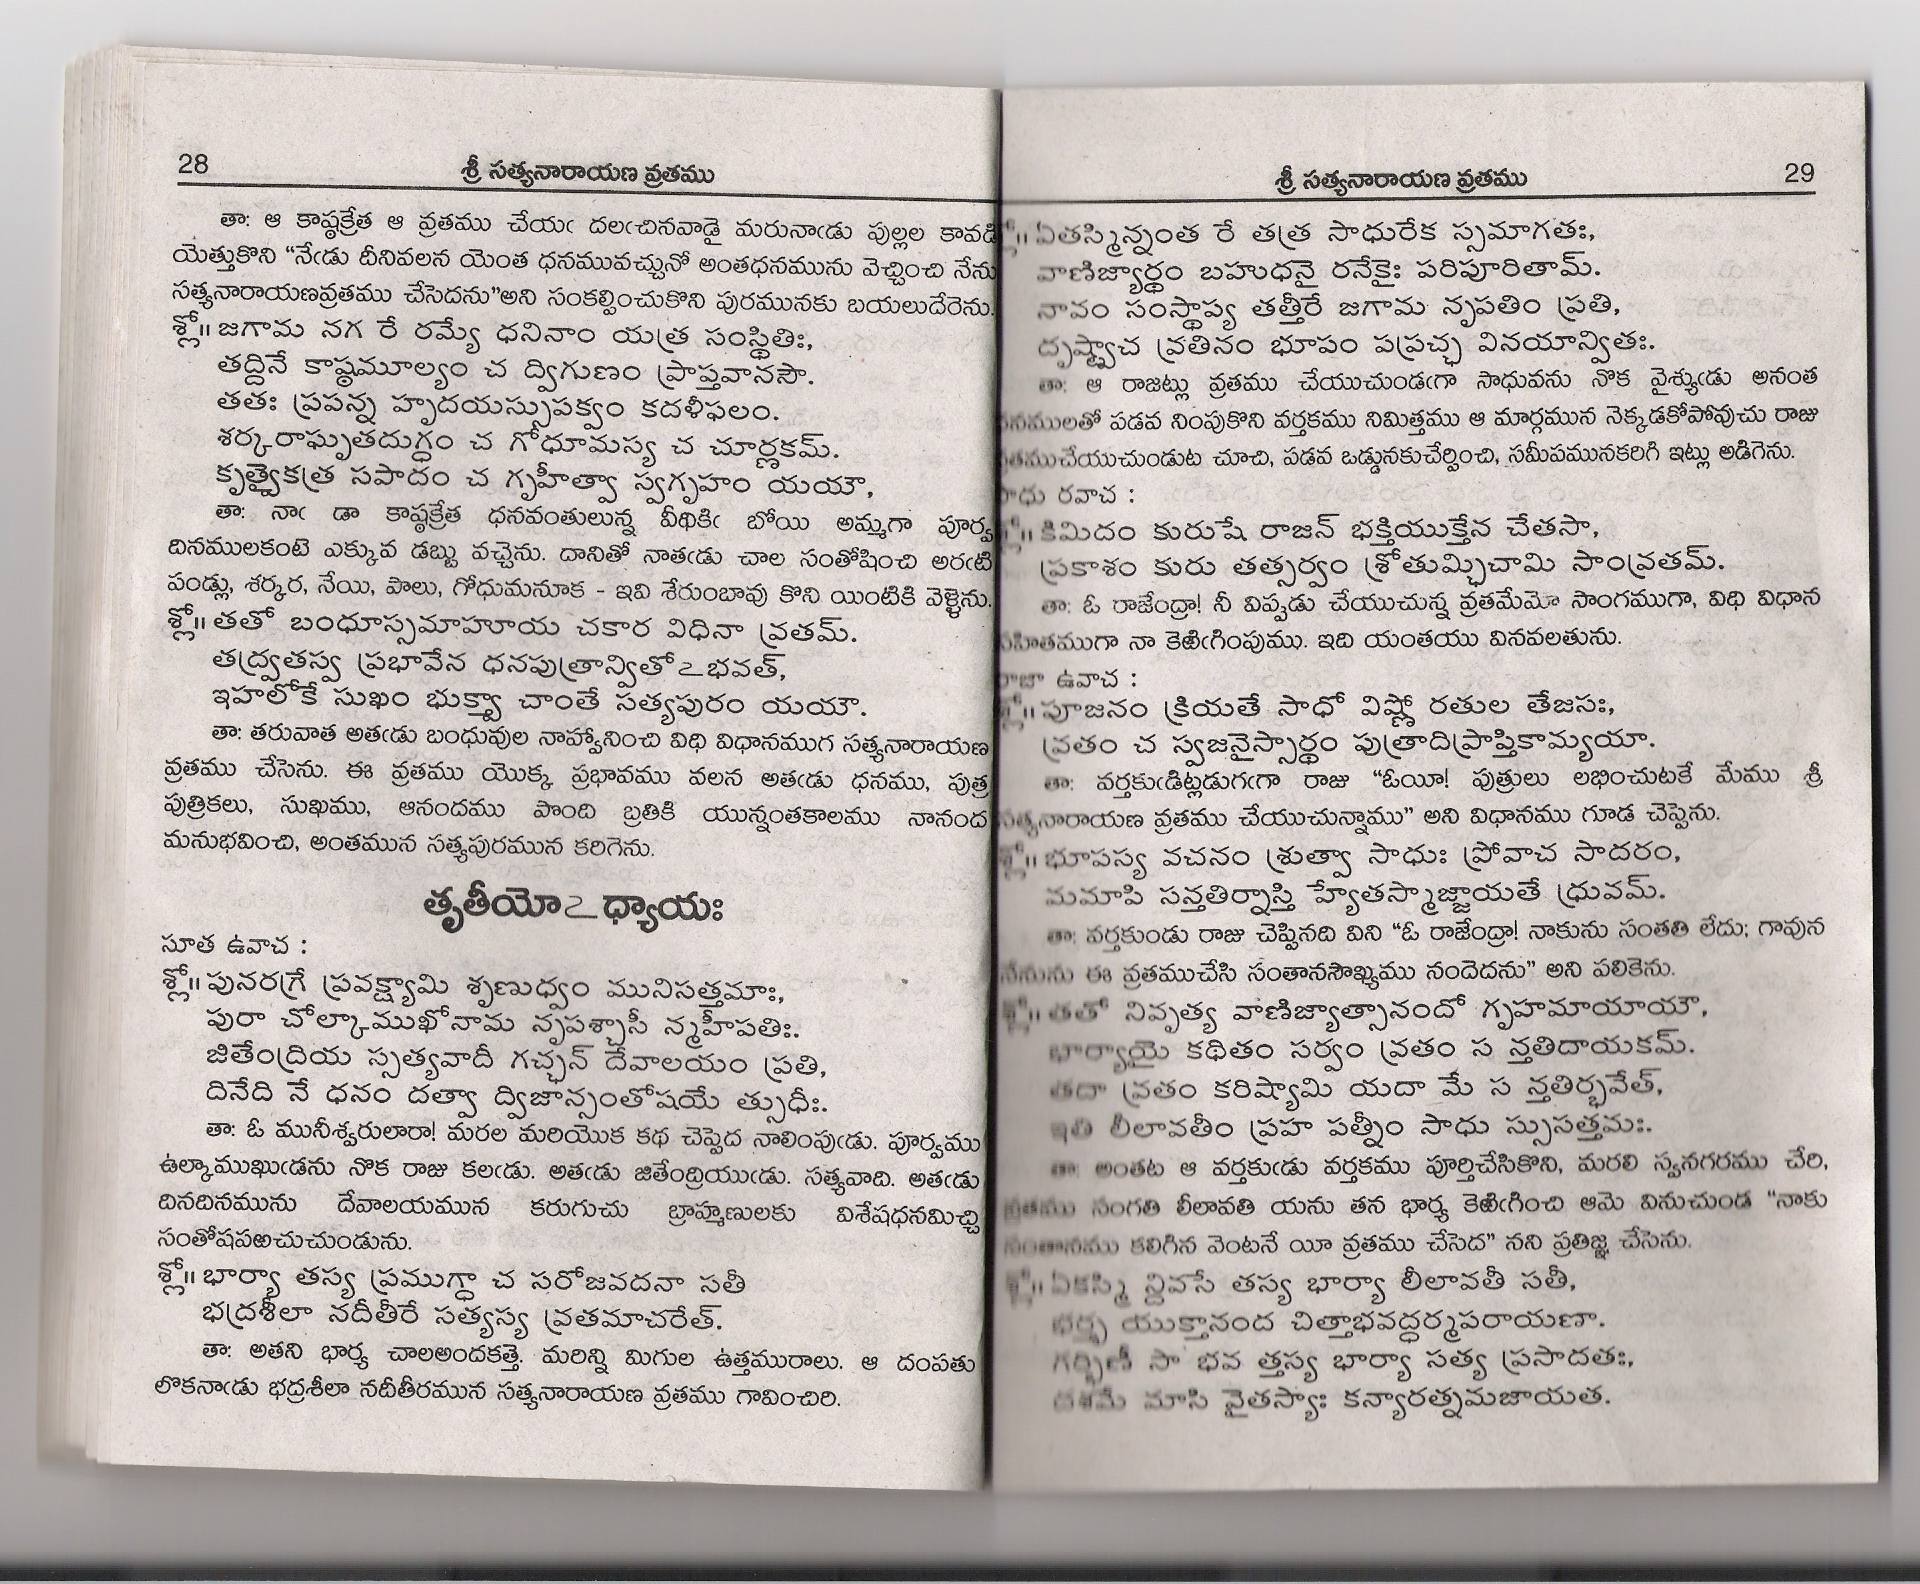 28
శ్రీ సత్యనారాయణ వ్రతము
తా: ఆ కాష్ఠక్రేత ఆ వ్రతము చేయఁ దలఁచినవాడై మరునాఁడు పుల్లల కావడి
యెత్తుకొని “నేఁడు దీనివలన యెంత ధనమువచ్చునో అంతధనమును వెచ్చించి నేను
సత్యనారాయణవ్రతము చేసెదను”అని సంకల్పించుకొని పురమునకు బయలుదేరెను.
శ్లో॥ జగామ నగ రే రమ్యే ధనినాం యత్ర సంస్థితిః,
తద్దినే కాష్ఠమూల్యం చ ద్విగుణం ప్రాప్తవానసౌ.
తతః ప్రపన్న హృదయస్సుపక్వం కదళీఫలం.
శర్కరాఘృతదుగ్ధం చ గోధూమస్య చ చూర్ణకమ్.
కృత్వైకత్ర సపాదం చ గృహీత్వా స్వగృహం యయౌ,
తా: నాఁ డా కాష్ఠక్రేత ధనవంతులున్న వీథికిఁ బోయి అమ్మగా పూర్వ
దినములకంటె ఎక్కువ డబ్బు వచ్చెను. దానితో నాతఁడు చాల సంతోషించి అరఁటి
పండ్లు, శర్కర, నేయి, పాలు, గోధుమనూక - ఇవి శేరుంబావు కొని యింటికి వెళ్ళెను.
శ్లో॥ తతో బంధూస్సమాహూయ చకార విధినా వ్రతమ్.
తద్వ్రతస్వ ప్రభావేన ధనపుత్రాన్వితోఽభవత్,
ఇహలోకే సుఖం భుక్త్వా చాంతే సత్యపురం యయౌ.
తా: తరువాత అతఁడు బంధువుల నాహ్వానించి విధి విధానముగ సత్యనారాయణ
వ్రతము చేసెను. ఈ వ్రతము యొక్క ప్రభావము వలన అతఁడు ధనము, పుత్ర
పుత్రికలు, సుఖము, ఆనందము పొంది బ్రతికి యున్నంతకాలము నానంద
మనుభవించి, అంతమున సత్యపురమున కరిగెను.
తృతీయోఽధ్యాయః
సూత ఉవాచ :
శ్లో॥ పునరగ్రే ప్రవక్ష్యామి శృణుధ్వం మునిసత్తమాః,
పురా చోల్కాముఖోనామ నృపశ్చాసీ న్మహీపతిః.
జితేంద్రియ స్సత్యవాదీ గచ్ఛన్ దేవాలయం ప్రతి,
దినేది నే ధనం దత్వా ద్విజాన్సంతోషయే త్సుధీః.
తా: ఓ మునీశ్వరులారా! మరల మరియొక కథ చెప్పెద నాలింపుఁడు. పూర్వము
ఉల్కాముఖుఁడను నొక రాజు కలఁడు. అతఁడు జితేంద్రియుఁడు. సత్యవాది. అతఁడు
దినదినమును దేవాలయమున కరుగుచు బ్రాహ్మణులకు విశేషధనమిచ్చి
సంతోషపఱచుచుండును.
శ్లో॥ భార్యా తస్య ప్రముగ్ధా చ సరోజవదనా సతీ
భద్రశీలా నదీతీరే సత్యస్య వ్రతమాచరేత్.
తా: అతని భార్య చాలఅందకత్తె. మరిన్ని మిగుల ఉత్తమురాలు. ఆ దంపతు
లొకనాఁడు భద్రశీలా నదీతీరమున సత్యనారాయణ వ్రతము గావించిరి.
శ్రీ సత్యనారాయణ వ్రతము
29
ఏతస్మిన్నంత రే తత్ర సాధురేక స్సమాగతః,
వాణిజ్యార్థం బహుధనై రనేకైః పరిపూరితామ్.
నావం సంస్థాప్య తత్తీరే జగామ నృపతిం ప్రతి,
దృష్ట్వాచ వ్రతినం భూపం పప్రచ్ఛ వినయాన్వితః.
తా: ఆ రాజట్లు వ్రతము చేయుచుండఁగా సాధువను నొక వైశ్యుఁడు అనంత
పడవ నింపుకొని వర్తకము నిమిత్తము ఆ మార్గమున నెక్కడకోపోవుచు రాజు
చూచి, పడవ ఒడ్డునకుచేర్పించి, సమీపమునకరిగి ఇట్లు అడిగెను.
రవాచ :
కిమిదం కురుషే రాజన్ భక్తియుక్తేన చేతసా,
ప్రకాశం కురు తత్సర్వం శ్రోతుమిచ్ఛామి సాంవ్రతమ్.
తా: ఓ రాజేంద్రా! నీ విప్పడు చేయుచున్న వ్రతమేమో సాంగముగా, విధి విధాన
నా కెఱిఁగింపుము. ఇది యంతయు వినవలతును.
ఉవాచ :
పూజనం క్రియతే సాధో విష్ణో రతుల తేజసః,
వ్రతం చ స్వజనైస్సార్థం పుత్రాదిప్రాప్తికామ్యయా.
తా: వర్తకుఁడిట్లడుగఁగా రాజు “ఓయీ! పుత్రులు లభించుటకే మేము శ్రీ
సత్యనారాయణ వ్రతము చేయుచున్నాము” అని విధానము గూడ చెప్పెను.
భూపస్య వచనం శ్రుత్వా సాధుః ప్రోవాచ సాదరం,
మమాపి సన్తతిర్నాస్తి హ్యేతస్మాజ్జాయతే ధ్రువమ్.
తా: వర్తకుండు రాజు చెప్పినది విని “ఓ రాజేంద్రా! నాకును సంతతి లేదు; గావున
నేనును ఈ వ్రతముచేసి సంతానసౌఖ్యము నందెదను” అని పలికెను.
తతో నివృత్య వాణిజ్యాత్సానందో గృహమాయాయౌ,
భార్యాయై కథితం సర్వం వ్రతం స న్తతిదాయకమ్.
తదా వ్రతం కరిష్యామి యదా మే స న్తతిర్భవేత్,
ఇతి లీలావతీం ప్రహ పత్నీం సాధు స్సుసత్తమః.
తా: అంతట ఆ వర్తకుఁడు వర్తకము పూర్తిచేసికొని, మరలి స్వనగరము చేరి,
వ్రతము సంగతి లీలావతి యను తన భార్య కెఱిఁగించి ఆమె వినుచుండ “నాకు
సంతానము కలిగిన వెంటనే యీ వ్రతము చేసెద” నని ప్రతిజ్ఞ చేసెను.
ఏకస్మి న్దివసే తస్య భార్యా లీలావతీ సతీ,
భర్తృ యుక్తానంద చిత్తాభవద్ధర్మపరాయణా.
గర్భిణీ సా భవ త్తస్య భార్యా సత్య ప్రసాదతః,
దశమే మాసి వైతస్యాః కన్యారత్నమజాయత.